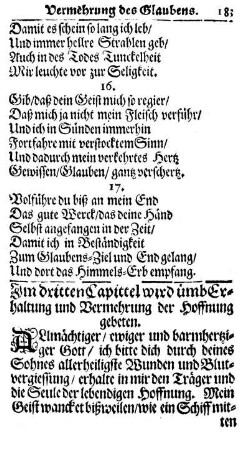 Vermehrung des Glaubens. 183
Damit es schein so lang ich leb/
Und immer hellre Strahlen geb/
Auch in des Todes Tunckelheit
Mir leuchte vor zur Seligkeit.
16.
Gib/daß dein Geist mich so regier/
Daß mich ja nicht mein Fleisch verführ/
Und ich in Sünden immerhin
Fortfahre mit verstocktem Sinn/
Und dadurch mein verkehrtes Hertz
Gewissen/Glauben/ gantz verschertz.
17.
Volführe du biß an mein End
Das gute Werck/das deine Händ
Selbst angefangen in der Zeit/
Damit ich in Beständigkeit
Zum Glaubens-Ziel und End gelang/
Und dort das Himmels-Erb empfang.
Im dritten Capittel wird umb Er-
haltung und Vermehrung der Hoffnung
gebeten.
Allmächtiger/ ewiger und barmhertzi-
ger Gott/ ich bitte dich durch deines
Sohnes allerheiligste Wunden und Blut-
vergiessung/ erhalte in mir den Träger und
die Seule der lebendigen Hoffnung. Mein
Geist wancket bißweilen/wie ein Schiff mit-
ten